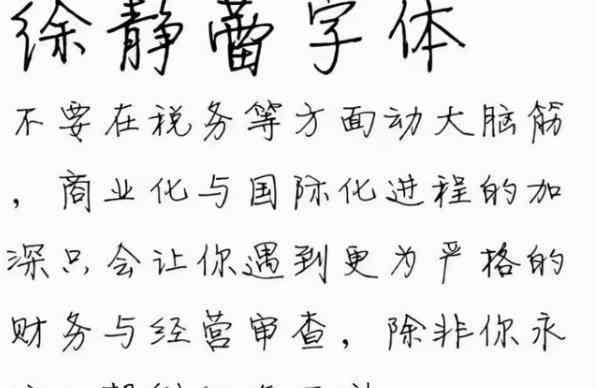 徐静蕾字体
不要在税务等方面动大脑筋
，商业化与国际化进程的加
深只会让你遇到更为严格的
财务与经营审查，除非你永